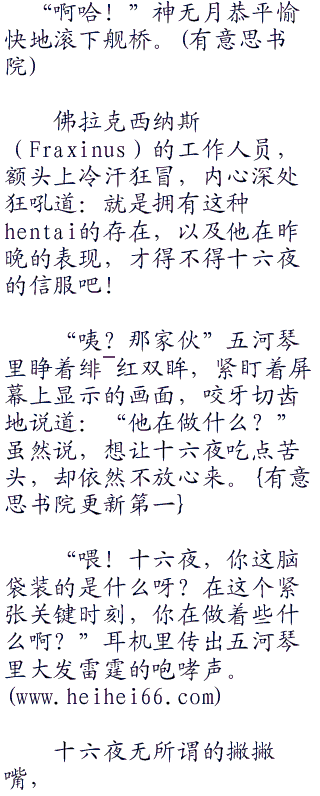 “啊哈！”神无月恭平愉
快地滚下舰桥。(有意思书
院)
佛拉克西纳斯
（Fraxinus）的工作人员，
额头上冷汗狂冒，内心深处
狂吼道：就是拥有这种
hentai的存在，以及他在昨
晚的表现，才得不得十六夜
的信服吧！
“咦？那家伙”五河琴
里睁着绯¯红双眸，紧盯着屏
幕上显示的画面，咬牙切齿
地说道：“他在做什么？”
虽然说，想让十六夜吃点苦
头，却依然不放心来。{有意
思书院更新第一}
“喂！十六夜，你这脑
袋装的是什么呀？在这个紧
张关键时刻，你在做着些什
么啊？”耳机里传出五河琴
里大发雷霆的咆哮声。
(www.heihei66.com)
十六夜无所谓的撇撇
嘴，